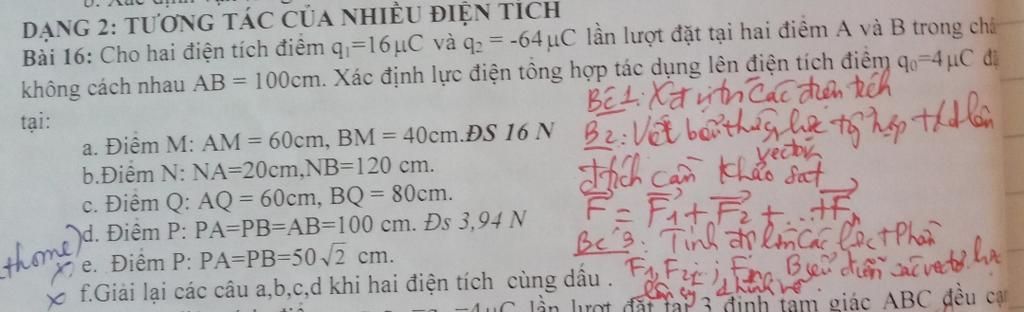 DẠNG 2: TƯƠNG TÁC CỦA NHIỀU ĐIỆN TÍCH
Bài 16: Cho hai điện tích điểm q₁=16μC và q₂ = -64μC lần lượt đặt tại hai điểm A và B trong
không cách nhau AB = 100cm. Xác định lực điện tổng hợp tác dụng lên điện tích điểm q₀=4μC
tại:
a. Điểm M: AM = 60cm, BM = 40cm.ĐS 16 N
b.Điểm N: NA=20cm,NB=120 cm.
c. Điểm Q: AQ = 60cm, BQ = 80cm.
d. Điểm P: PA=PB=AB=100 cm. Đs 3,94 N
e. Điểm P: PA=PB=50√2 cm.
f.Giải lại các câu a,b,c,d khi hai điện tích cùng dấu .
lần lượt đặt tại 3 đỉnh tam giác ABC đều
Bc 1: Xđ vị trí các điện tích
B2: Viết biểu thức lực tổng hợp t/d lên
đ/tích cần khảo sát
vectơ
F = F₁ + F₂ + ... + Fₙ
Bc 3: Tính độ lớn các lực t/phần
home